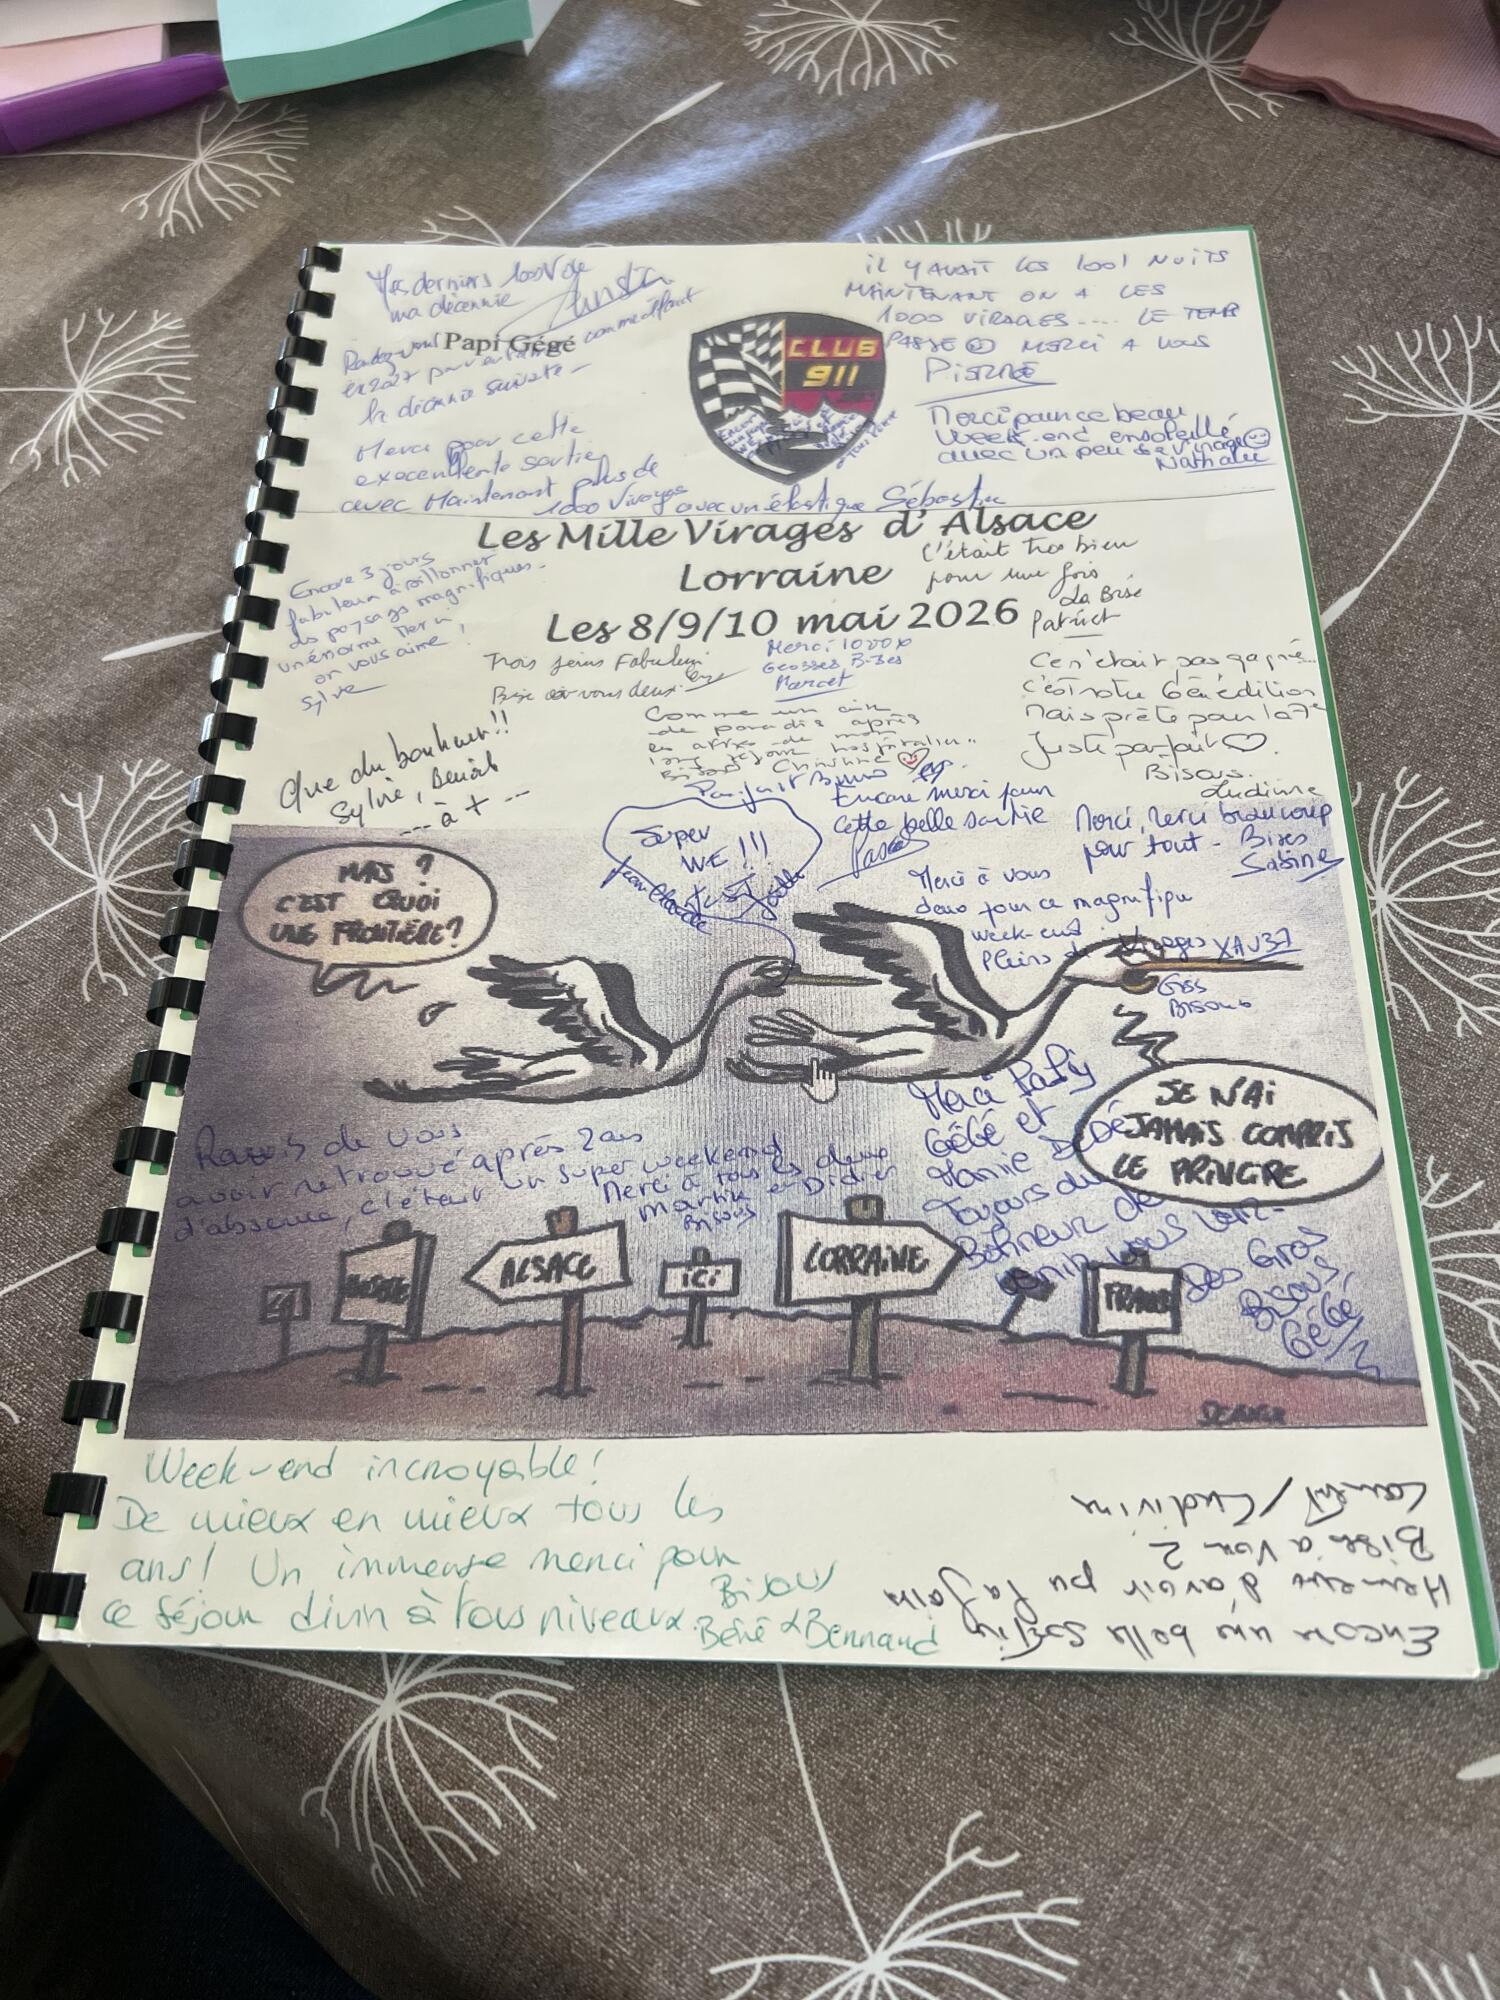 Mes derniers 1000V de
ma décennie
Rendez-vous
en 2027 pour
comme il faut
la décennie suivante -
Papi Gégé
CLUB
911
IL Y AVAIT LES 1001 NUITS
MAINTENANT ON A LES
1000 VIRAGES .... LE TEMP
PASSE MERCI A VOUS
PIERRE
Merci pour ce beau
week-end ensoleillé
avec un peu de virage
Nathalie
Merci pour cette
excellente sortie
avec Maintenant plus de
1000 Virages avec un élastique Sébastien
Les Mille Virages d'Alsace
Lorraine
Les 8/9/10 mai 2026
C'était très bien
pour une fois
La Bise
Patrick
Encore 3 jours
fabuleux à sillonner
des paysages magnifiques.
un énorme Merci
on vous aime !
Sylvie
Trois jours Fabuleux
Bise à vous deux
Merci 1000 x
Grosses Bises
Marcel
Ce n'était pas gagné...
c'est notre 6em édition
Mais prête pour la 7e
Juste parfait ♡.
Bisous.
Ludivine
Comme un coin
de paradis après
long séjour hospitalier..
Bisous Christine
Que du bonheur !!
Sylvie, Benoit
--- à + ---
Parfait Bruno
Encore merci pour
cette belle sortie
Pascal
Super
WE !!!
Jean Claude
Merci, merci beaucoup
pour tout - Bises
Sabine
Merci à vous
deux pour ce magnifique
week-end
Pleins de Virages
Gros
Bisous
MAIS ?
C'EST QUOI
UNE FRONTIÈRE ?
JE N'AI
JAMAIS COMPRIS
LE PRINCIPE
Merci Papy
Gégé et
Mamie DéDé
Toujours du
Bonheur de
venir vous voir.
Des Gros
Bisous,
Gégé
Ravis de vous
avoir retrouvé après 2 ans
d'absence, c'était un super weekend
Merci à tous les deux
Martine et Didier
Bisous
ALSACE
ICI
LORRAINE
FRANCE
Week-end incroyable !
De mieux en mieux tous les
ans ! Un immense merci pour
ce séjour divin à tous niveaux.
Bisous
Béné & Bernard
Encore une belle sortie
Heureux d'avoir pu la faire
Bise à Vous 2
Laurent / Ludivine